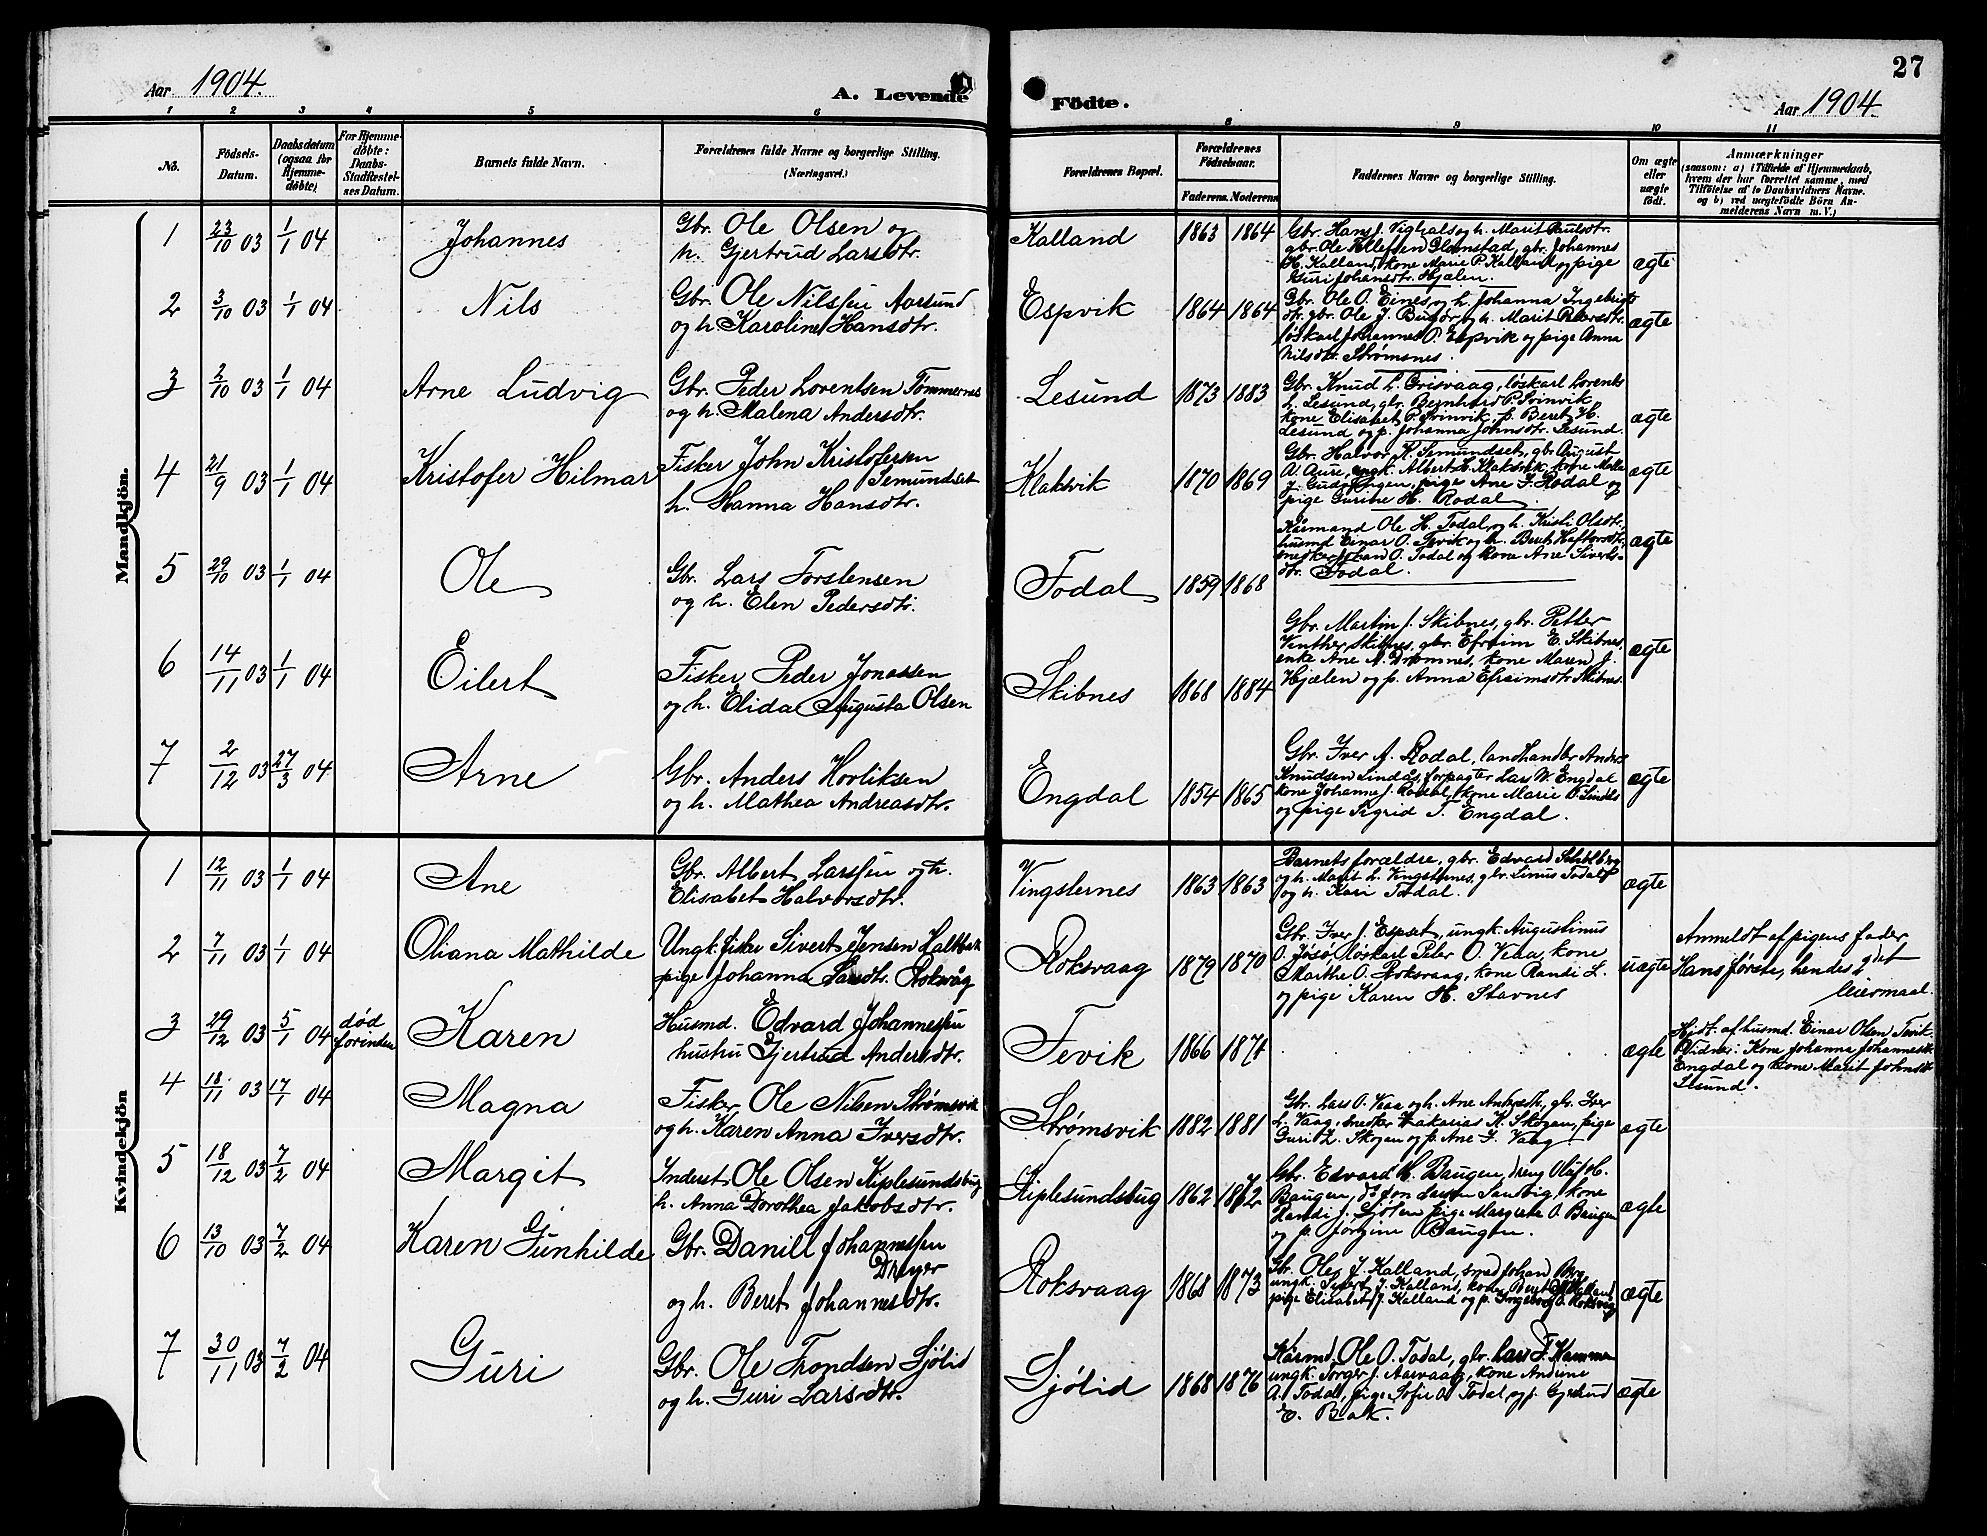 Aar 1904.
A. Levende
Födte.
27
Aar 1904.
1 2 3 4 5 6 8 9 10 11
No.
Födsels-
Datum.
Daabsdatum
(ogsaa for
Hjemme-
døbte)
For Hjemme-
døbte:
Daabs-
Stadfæstel-
ses Datum.
Barnets fulde Navn.
Forældrenes fulde Navne og borgerlige Stilling.
(Næringsvei.)
Forældrenes Bopæl.
Forældrenes
Födselsaar.
Faderens. Moderens
Faddernes Navne og borgerlige Stilling.
Om ægte
eller
uægte
født.
Anmærkninger
(saasom: a) i Tilfælde af Hjemmedaab,
hvem der har forrettet samme, med
Tilföielse af to Daabsvidners Navne.
og b) ved uægtefödte Börn An-
melderens Navn m. V.)
Mandkjön.
1 23/10 03 1/1 04 Johannes
Gbr. Ole Olsen og
h. Gjertrud Larsdtr.
Kalland 1863 1864
Gbr. Hans J. Vighals og h. Marit Paulsdtr.
gbr. Ole Ellefsen Glamstad, gbr. Johannes
H. Kalland, kone Marie P. Kalland og pige
Guri Johansdtr. Hjælen
ægte
2 3/10 03 1/1 04 Nils
Gbr. Ole Nilssen Aarsund
og h. Karoline Hansdtr.
Espvik 1864 1864
Gbr. Ole O. Eines og h. Johanna Ingebrigts
dtr. gbr. Ole J. Bugør og h. Marit Pedersdtr.
løskarl Johannes O. Espvik og pige Anna
Nilsdtr. Strømsnes.
ægte
3 2/10 03 1/1 04 Arne Ludvig
Gbr. Peder Lorentsen Tømmernes
og h. Malena Andersdtr.
Lesund 1873 1883
Gbr. Knud L. Grisvaag, løskarl Lorents
L. Lesund, gbr. Bernhard P. Svinvik,
kone Elisabet P. Svinvik, p. Beret H.
Lesund og p. Johanna Johnsdtr. Lesund.
ægte
4 21/9 03 1/1 04 Kristofer Hilmar
Fisker John Kristofersen
Semundset
h. Hanna Hansdtr.
Klaksvik 1870 1869
Gbr. Halvor K. Semundseth, gbr. August
A. Aure, ungk. Albert H. Klaksvik, kone
pige Ane J. Rodal og
pige Gurine H. Rodal
ægte
5 29/10 03 1/1 04 Ole
Gbr. Lars Torstensen
og h. Elen Pedersdtr.
Todal 1859 1868
Kårmand Ole H. Todal og h. Kristi Olsdtr.,
husmd Einar O. Tevik og h. Beret Haftorsdtr.
snekker Johan O. Todal og kone Ane Siverts-
dtr. Todal.
ægte
6 14/11 03 1/1 04 Eilert
Fisker Peder Jonassen
og h. Elida Augusta Olsen
Skibnes 1868 1884
Gbr. Martin J. Skibnes, gbr. Petter
Vinther Skibnes, gbr. Efraim E. Skibnes,
enke Ane A. Dromnes, kone Maren J.
Hjælen og p. Anna Efraimsdtr Skibnes.
ægte
7 2/12 03 27/3 04 Arne
Gbr. Anders Hovliksen
og h. Mathea Andreasdtr.
Engdal 1854 1865
Gbr. Iver A. Rodal, landhandler Anders
Knudsen Lindås, forpagter Lars W. Engdal
kone Johanna J. Rodal, kone Marie O. Lindås
og pige Sigrid T. Engdal.
ægte
Kvindekjön
1 12/11 03 1/1 04 Ane
Gbr. Albert Larssen og h.
Elisabet Halvorsdtr.
Vingsternes 1863 1863
Barnets forældre, gbr. Edvard
og h. Marit L. Vingsternes, gbr. Linus Todal
og h. Kari Todal.
ægte
2 7/11 03 1/1 04 Oliana Mathilde
Ungk. fisker Sivert Jensen Haltbak
pige Johanna Larsdtr. Roksvåg
Roksvaag 1879 1870
Gbr. Iver J. Espset, ungk. Augustinus
O. Jøsø, løskarl Peter O. Veaa, kone
Marthe O. Roksvaag, kone Randi L.
og pige Karen H. Stavnes
uægte
Anmeldt af pigens fader
Hans første, hendes 2det
leiermaal.
3 29/12 03 5/1 04 død
forinden
Karen
Husmd. Edvard Johannessen
hustru Gjertrud Andersdtr.
Tevik 1866 1871
ægte
Hjdt. af husmd. Einar Olsen Tevik
Vidner: Kone Johanna Johannesdtr.
Engdal og kone Marit Johnsdtr
Lesund.
4 18/11 03 17/1 04 Magna
Fisker Ole Nilsen Strømsvik
og h. Karen Anna Iversdtr.
Strømsvik 1882 1881
Gbr. Lars O. Veaa og h. Ane Andersdtr., gbr. Iver
L. Vaag, snekker Zakarias K. Skogen, pige
Guri L. Skogen og p. Ane J. Vaag
ægte
5 18/12 03 7/2 04 Margit
Inderst Ole Olsen Kiplesundsbug
h. Anna Dorothea Jakobsdtr.
Kiplesundsbug 1862 1862
Gbr. Edvard H. Baugen, dreng Oluf H.
Baugen, do Jon Larsen Sandvig, kone
Randi J. pige Margrete O. Baugen
og p. Jørgine Baugen.
ægte
6 13/10 03 7/2 04 Karen Gunhilde
Gbr. Danill Johannessen
Drager
og h. Beret Johannesdtr.
Roksvaag 1868 1873
Gbr. Ole J. Kalland, smed Johan Bro
ungk. Sivert J. Kalland, kone Beret Kalland
pige Elisabet J. Kalland og p. Ingeborg O. Roksvåg
ægte
7 30/11 03 7/2 04 Guri
Gbr. Ole Trondsen Sjølid
og h. Guri Larsdtr.
Sjølid 1868 1876
Kårmd. Ole O. Todal, gbr. Lars F. Hamnes
ungk. Torger J. Aarvaag, kone Andrine
A. Todal, pige Sofie O. Todal og p. Gjertrud
E. Bak.
ægte